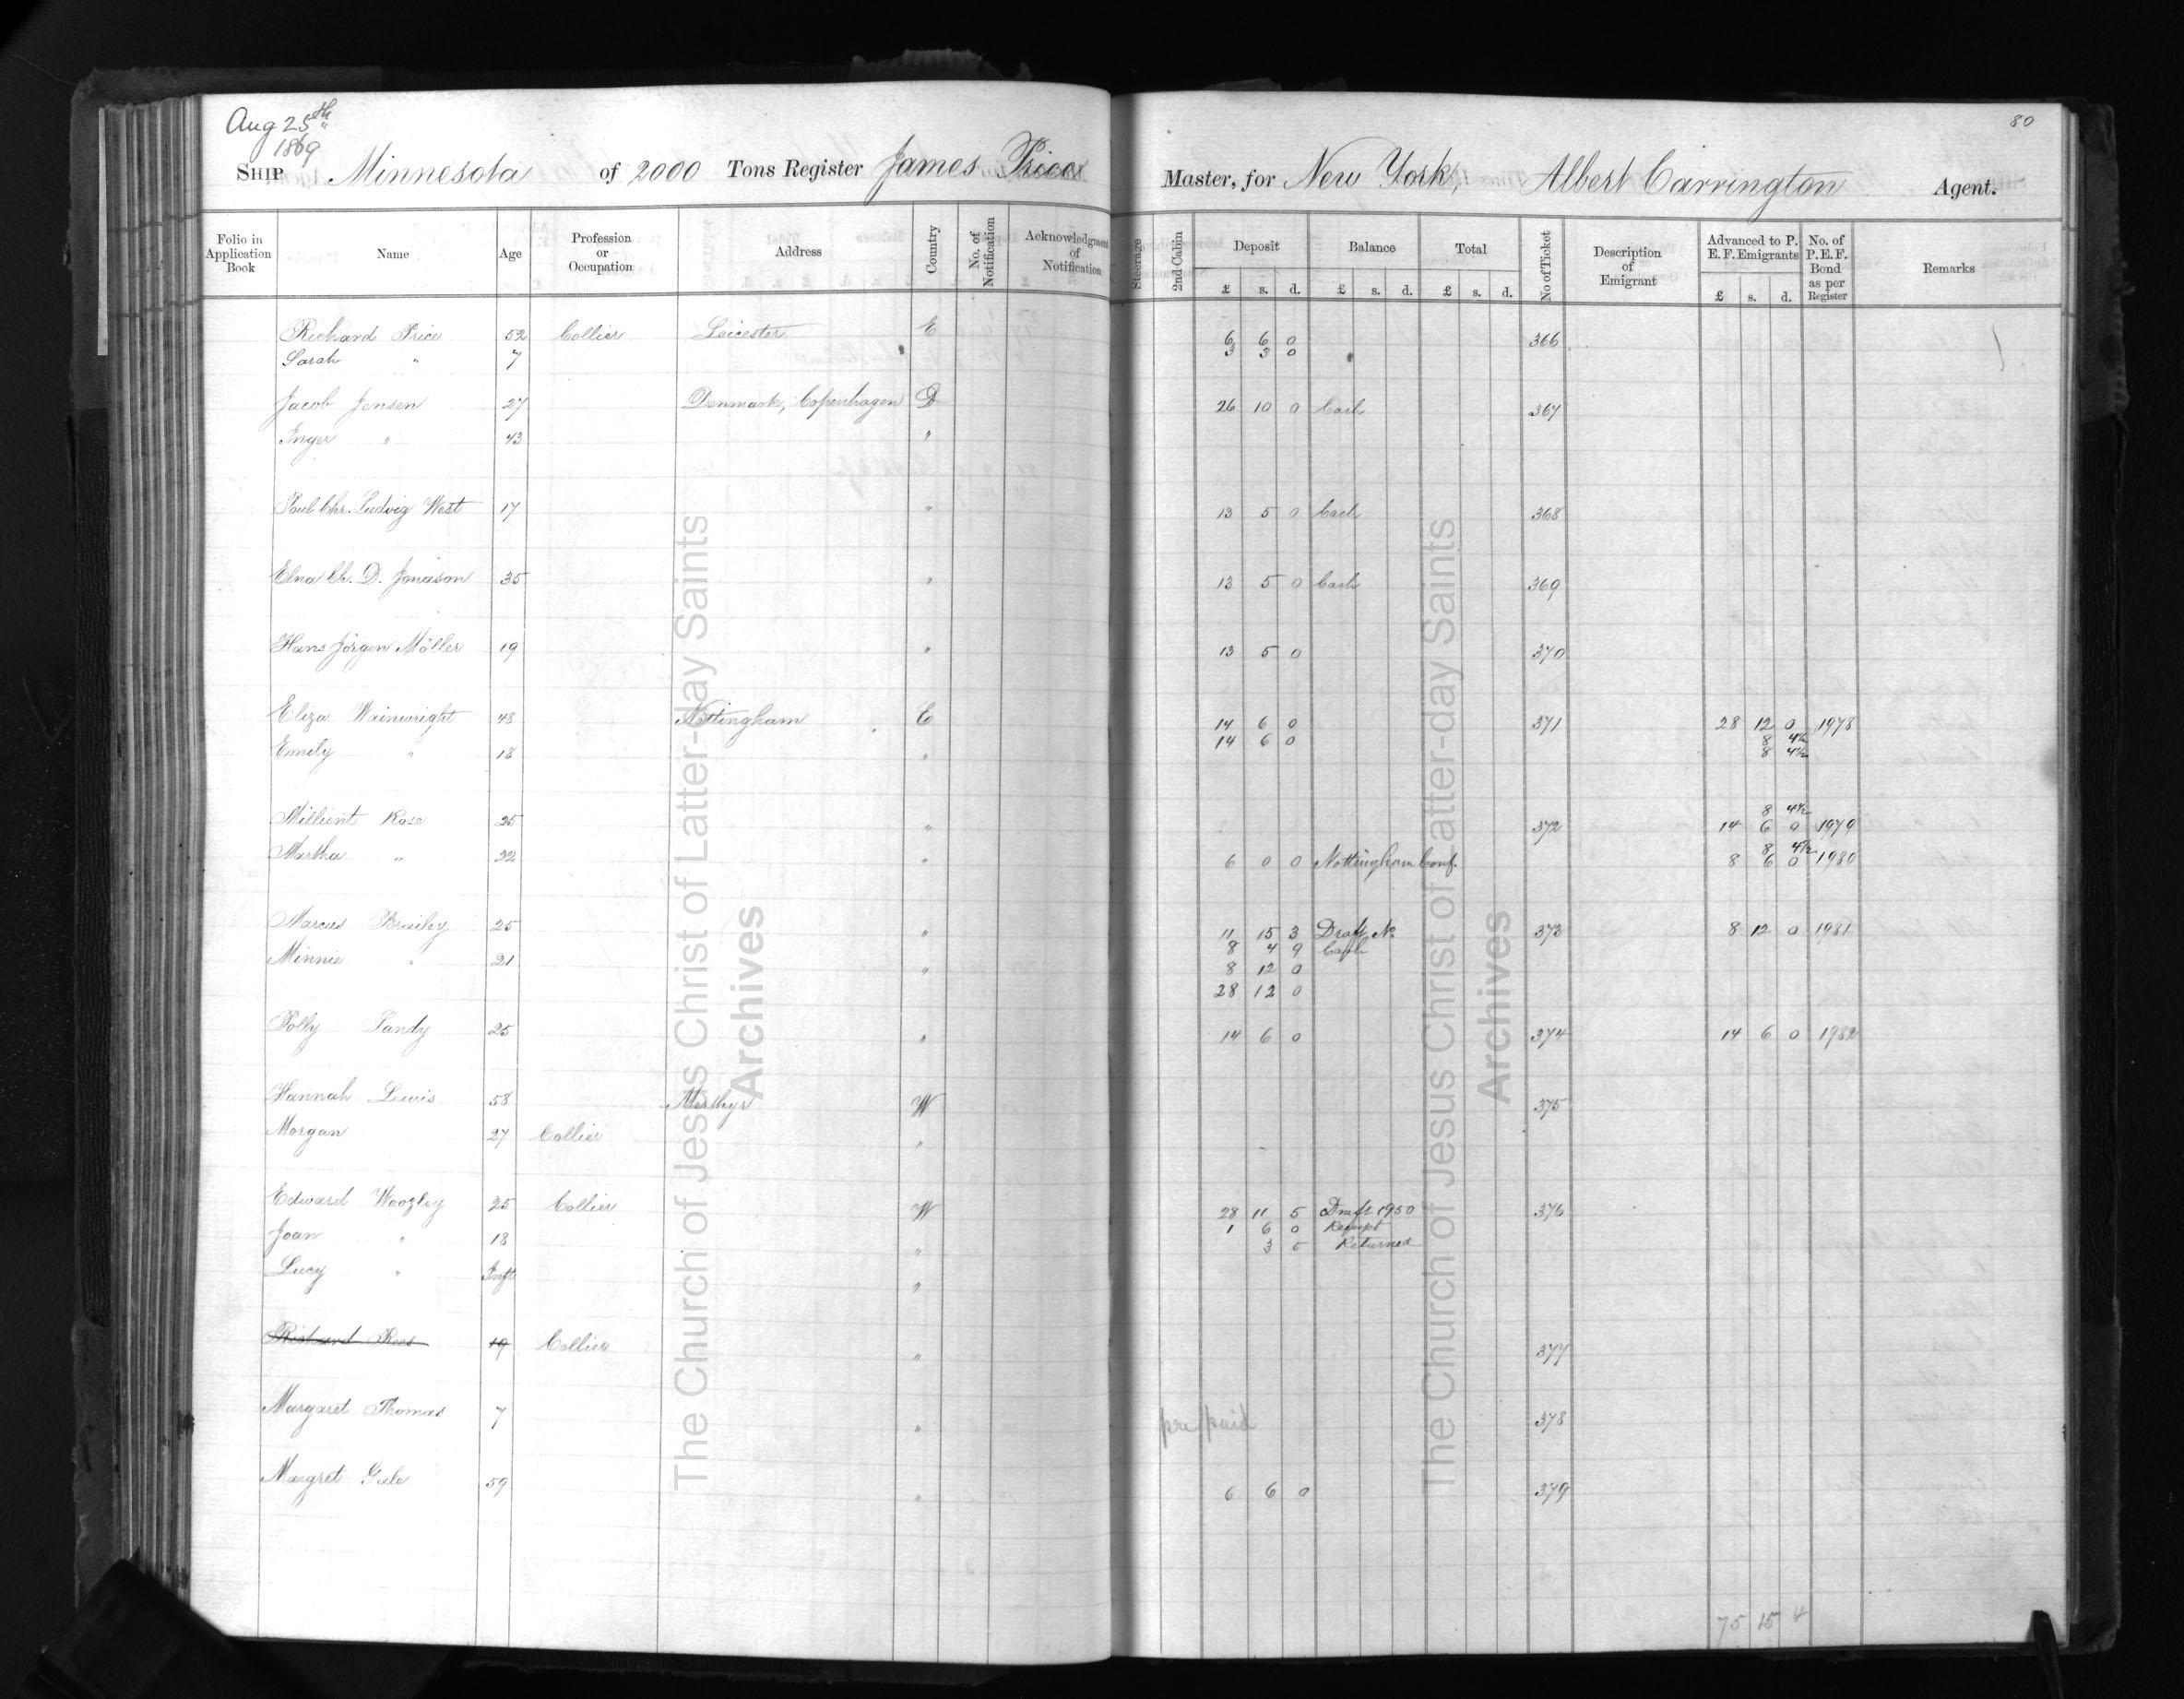 Aug 25th 1869
80
SHIP Minnesota of 2000 Tons Register James Price Master, for New York, Albert Carrington Agent.
Folio in Application Book | Name | Age | Profession or Occupation | Address | Country | No. of Notification | Acknowledgment of Notification | Steerage | 2nd Cabin | Deposit £ s. d. | Balance £ s. d. | Total £ s. d. | No of Ticket | Description of Emigrant | Advanced to P. E. F. Emigrants £ s. d. | No. of P.E.F. Bond as per Register | Remarks
Richard Price 52 Collier Leicester E 6 6 0 366
Sarah " 7 3 3 0
Jacob Jensen 27 Denmark, Copenhagen D 26 10 0 Cash 367
Inger " 43 "
Poul Chr. Ludvig West 17 " 13 5 0 Cash 368
Elna Ch. D. Jonason 35 " 13 5 0 Cash 369
Hans Jörgen Möller 19 " 13 5 0 370
Eliza Wainwright 48 Nottingham E 14 6 0 371 28 12 0 1978
Emily " 18 " 14 6 0 8 4½
8 4½
8 4½
Millicent Rose 25 " 372 14 6 0 1979
8 4½
Martha " 22 " 6 0 0 Nottingham Conf. 8 6 0 1980
Marcus 25 " 11 15 3 Draft No. 373 8 12 0 1981
Minnie " 21 " 8 4 9 Cash
8 12 0
28 12 0
Polly Sandy 25 " 14 6 0 374 14 6 0 1982
Hannah Lewis 58 Merthyr W 375
Morgan 27 Collier "
Edward Woozley 25 Collier W 28 11 5 Draft 1950 376
Joan " 18 " 1 6 0 Receipt
3 5 Returned
Lucy " Inft "
Richard Rees 19 Collier " 377
Margaret Thomas 7 " pre paid 378
Margret Gale 59 " 6 6 0 379
75 15 4
The Church of Jesus Christ of Latter-day Saints
Archives
The Church of Jesus Christ of Latter-day Saints
Archives